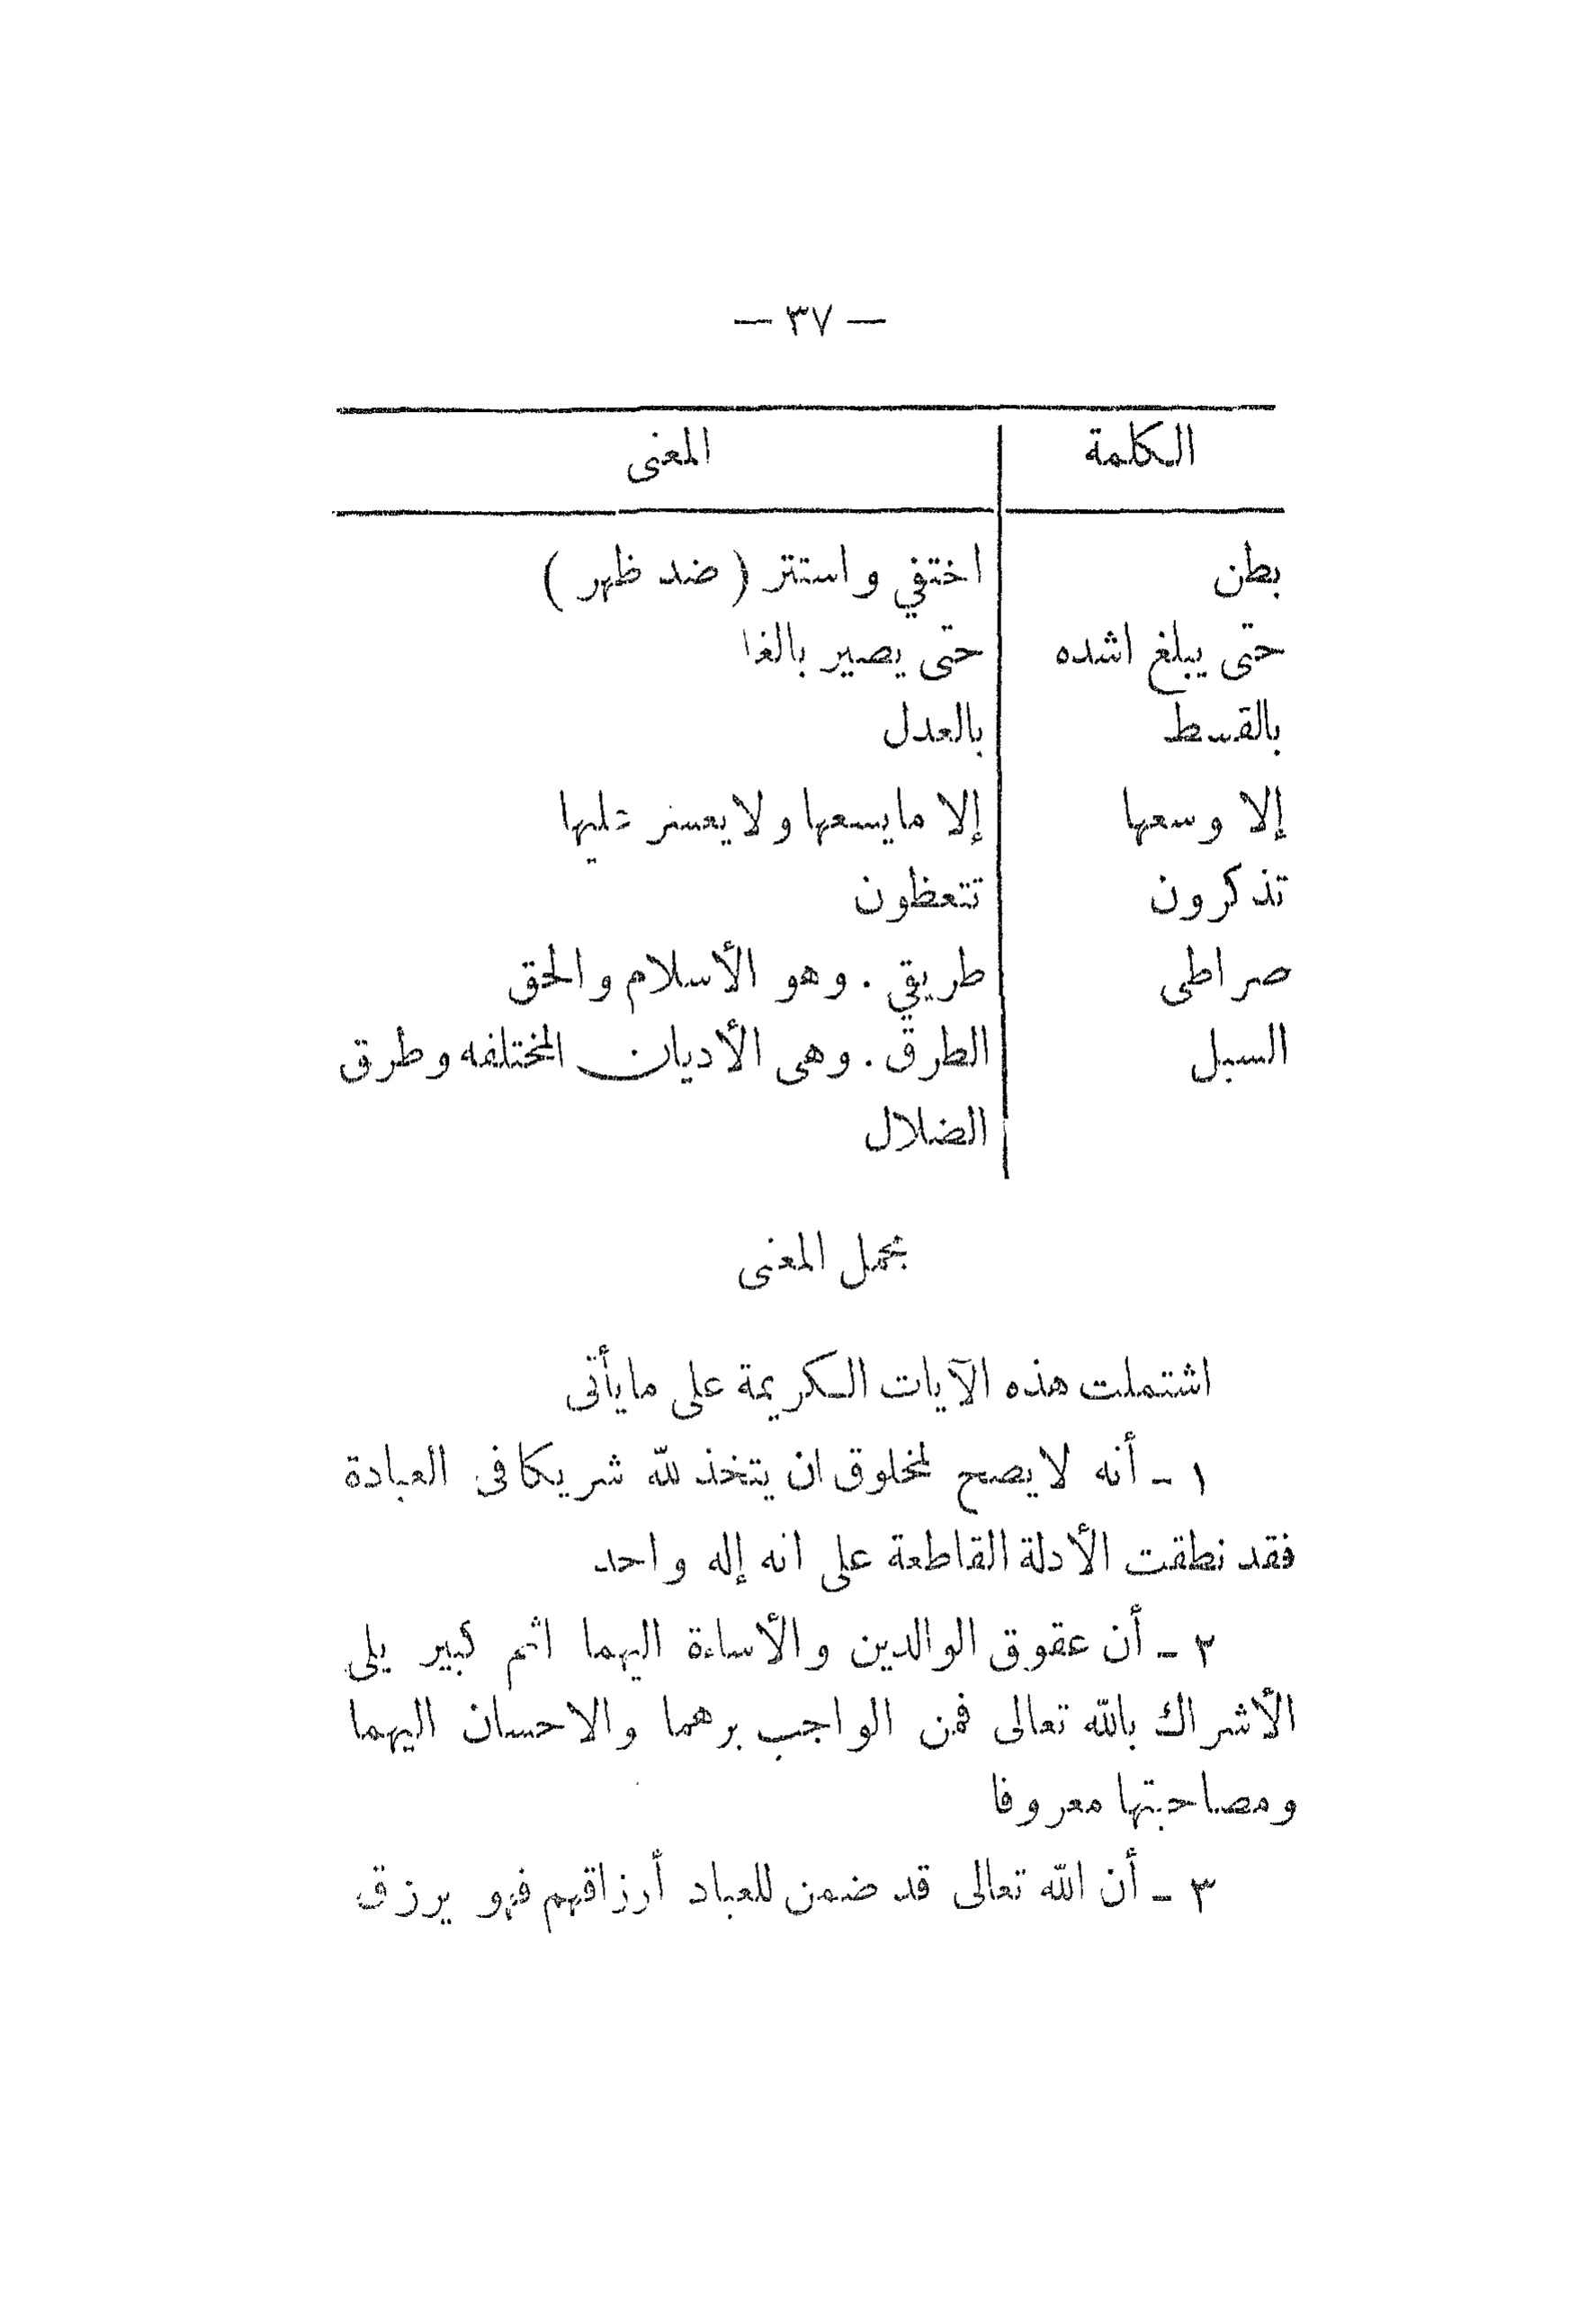 — ٣٧ —
الكلمة المعنى
بطن اختفي واستتر ( ضد ظهر )
حتى يبلغ اشده حتى يصير بالغا
بالقسط بالعدل
إلا وسعها إلا مايسعها ولا يعسر عليها
تذكرون تتعظون
صراطى طريقي . وهو الأسلام والحق
السبل الطرق . وهى الأديان المختلفه وطرق
الضلال
مجمل المعنى
اشتملت هذه الآيات الكريمة على مايأتى
١ - أنه لا يصح لمخلوق ان يتخذ لله شريكا فى العبادة
فقد نطقت الأدلة القاطعة على انه إله واحد
٢ - أن عقوق الوالدين والأساءة اليهما اثم كبير يلى
الأشراك بالله تعالى فمن الواجب برهما والاحسان اليهما
ومصاحبتها معروفا
٣ - أن الله تعالى قد ضمن للعباد أرزاقهم فهو يرزق